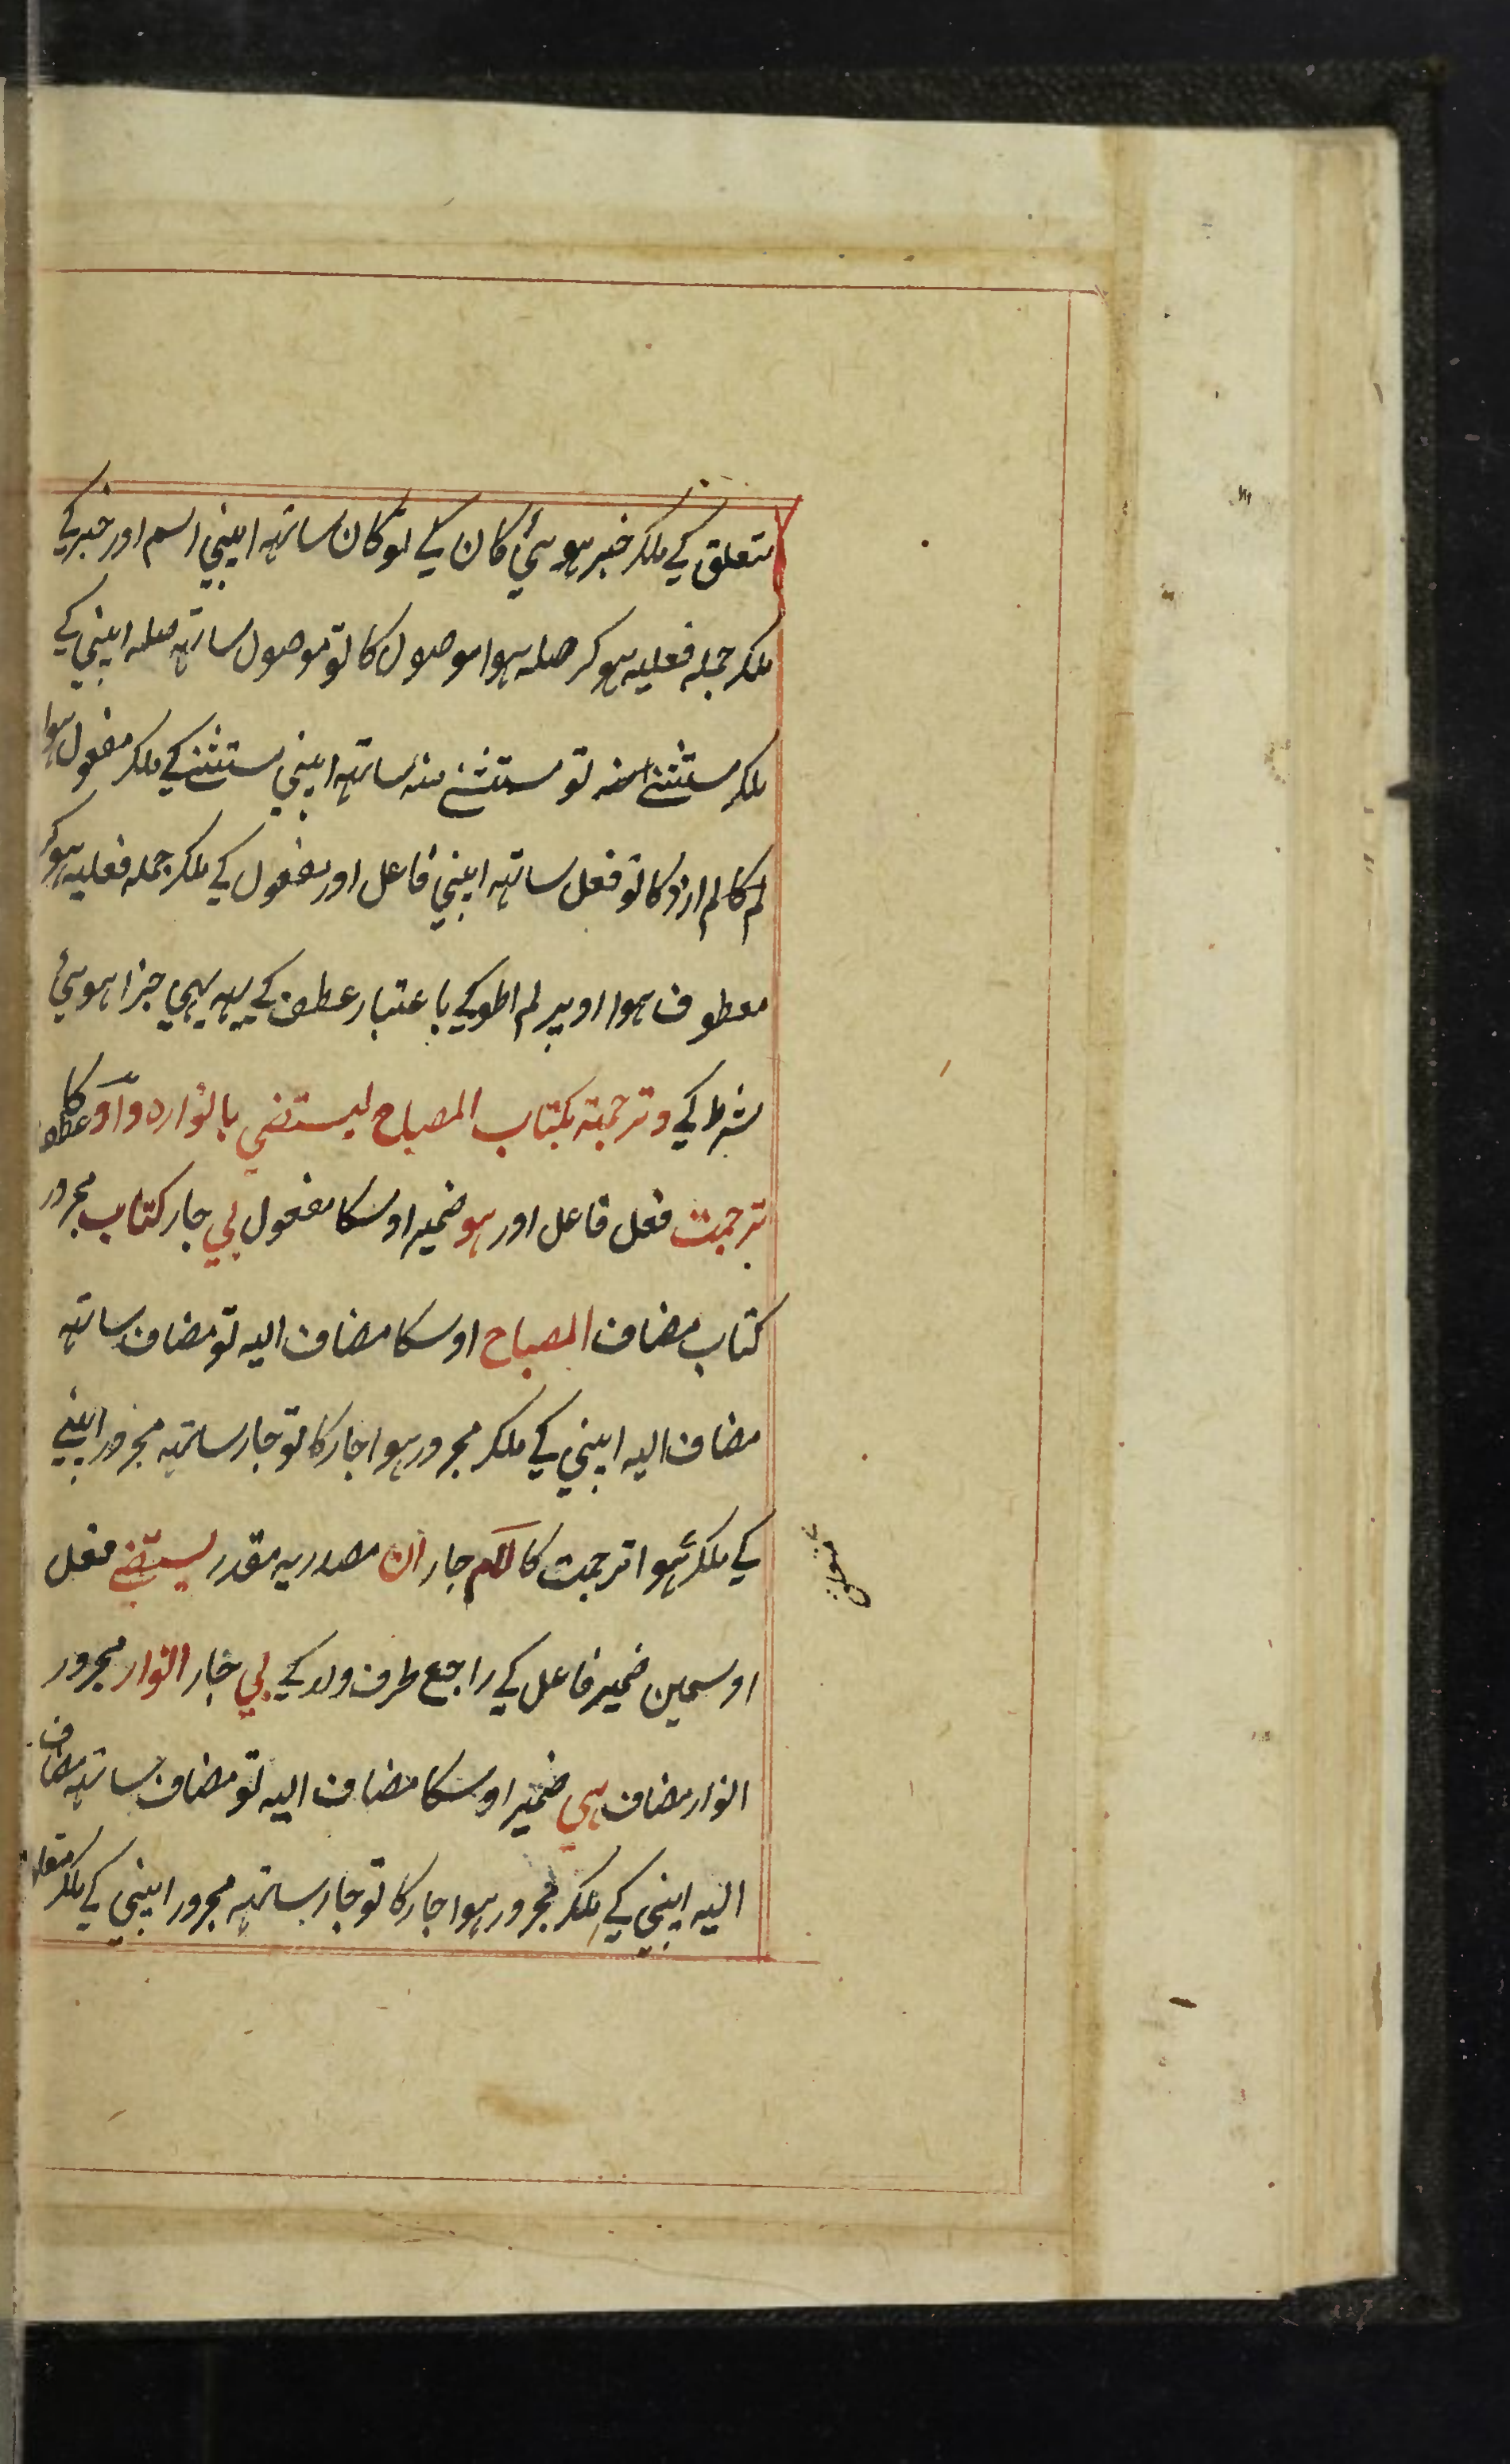 متعلق کے ملکر خبر ہوئی کان کے تو کان ساتہہ اپنی اسم اور خبر کے
ملکر جملہ فعلیہ ہوکر صلہ ہوا موصول کا تو موصول ساتہہ صلہ اپنی کے
ملکر مستثنے منہ تو مستثنے منہ ساتہہ اپنی مستثنے کے ملکر مفعول ہوا
لم کا لم ازد کا تو فعل ساتہہ اپنی فاعل اور مفعول کے ملکر جملہ فعلیہ ہوکر
معطوف ہوا اوپر لم اطو کے باعتبار عطف کے یہہ بہی جزا ہوئی
شرط کے وترجمتہ بکتاب المصباح لیستضی بانوارہ واو عطف کا
ترجمت فعل فاعل اور ہو ضمیر اوسکا مفعول بی جار کتاب مجرور
کتاب مضاف المصباح اوسکا مضاف الیہ تو مضاف ساتہہ
مضاف الیہ اپنی کے ملکر مجرور ہوا جار کا تو جار ساتہہ مجرور اپنے
کے ملکر ہوا ترجمت کا لام جار ان مصدریہ مقدر یستضے فعل
متعلق
اوسمین ضمیر فاعل کے راجع طرف ولد کے بی جار انوار مجرور
انوار مضاف ہی ضمیر اوسکا مضاف الیہ تو مضاف ساتہہ مضاف
الیہ اپنی کے ملکر مجرور ہوا جار کا تو جار ساتہہ مجرور اپنی کے ملکر متعلق